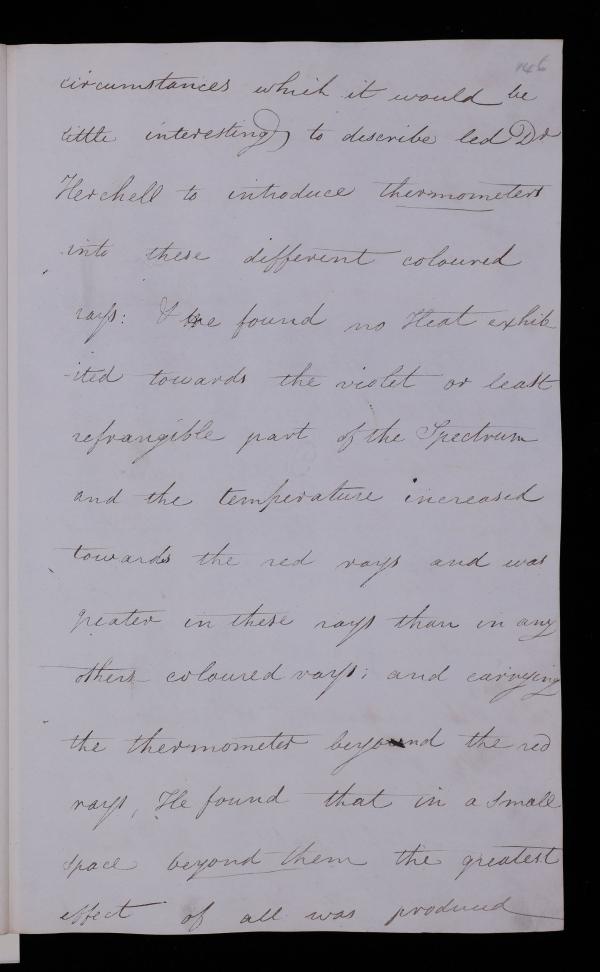 146
circumstances which it would be
little interesting) to describe led Dr
Herchell to introduce thermometers
into these different coloured
rays: & he found no Heat exhib
-ited towards the violet or least
refrangible part of the Spectrum
and the temperature increased
towards the red rays and was
greater in these rays than in any
others coloured rays; and carrying
the thermometer beyond the red
rays, He found that in a small
space beyond them the greatest
effect of all was produced